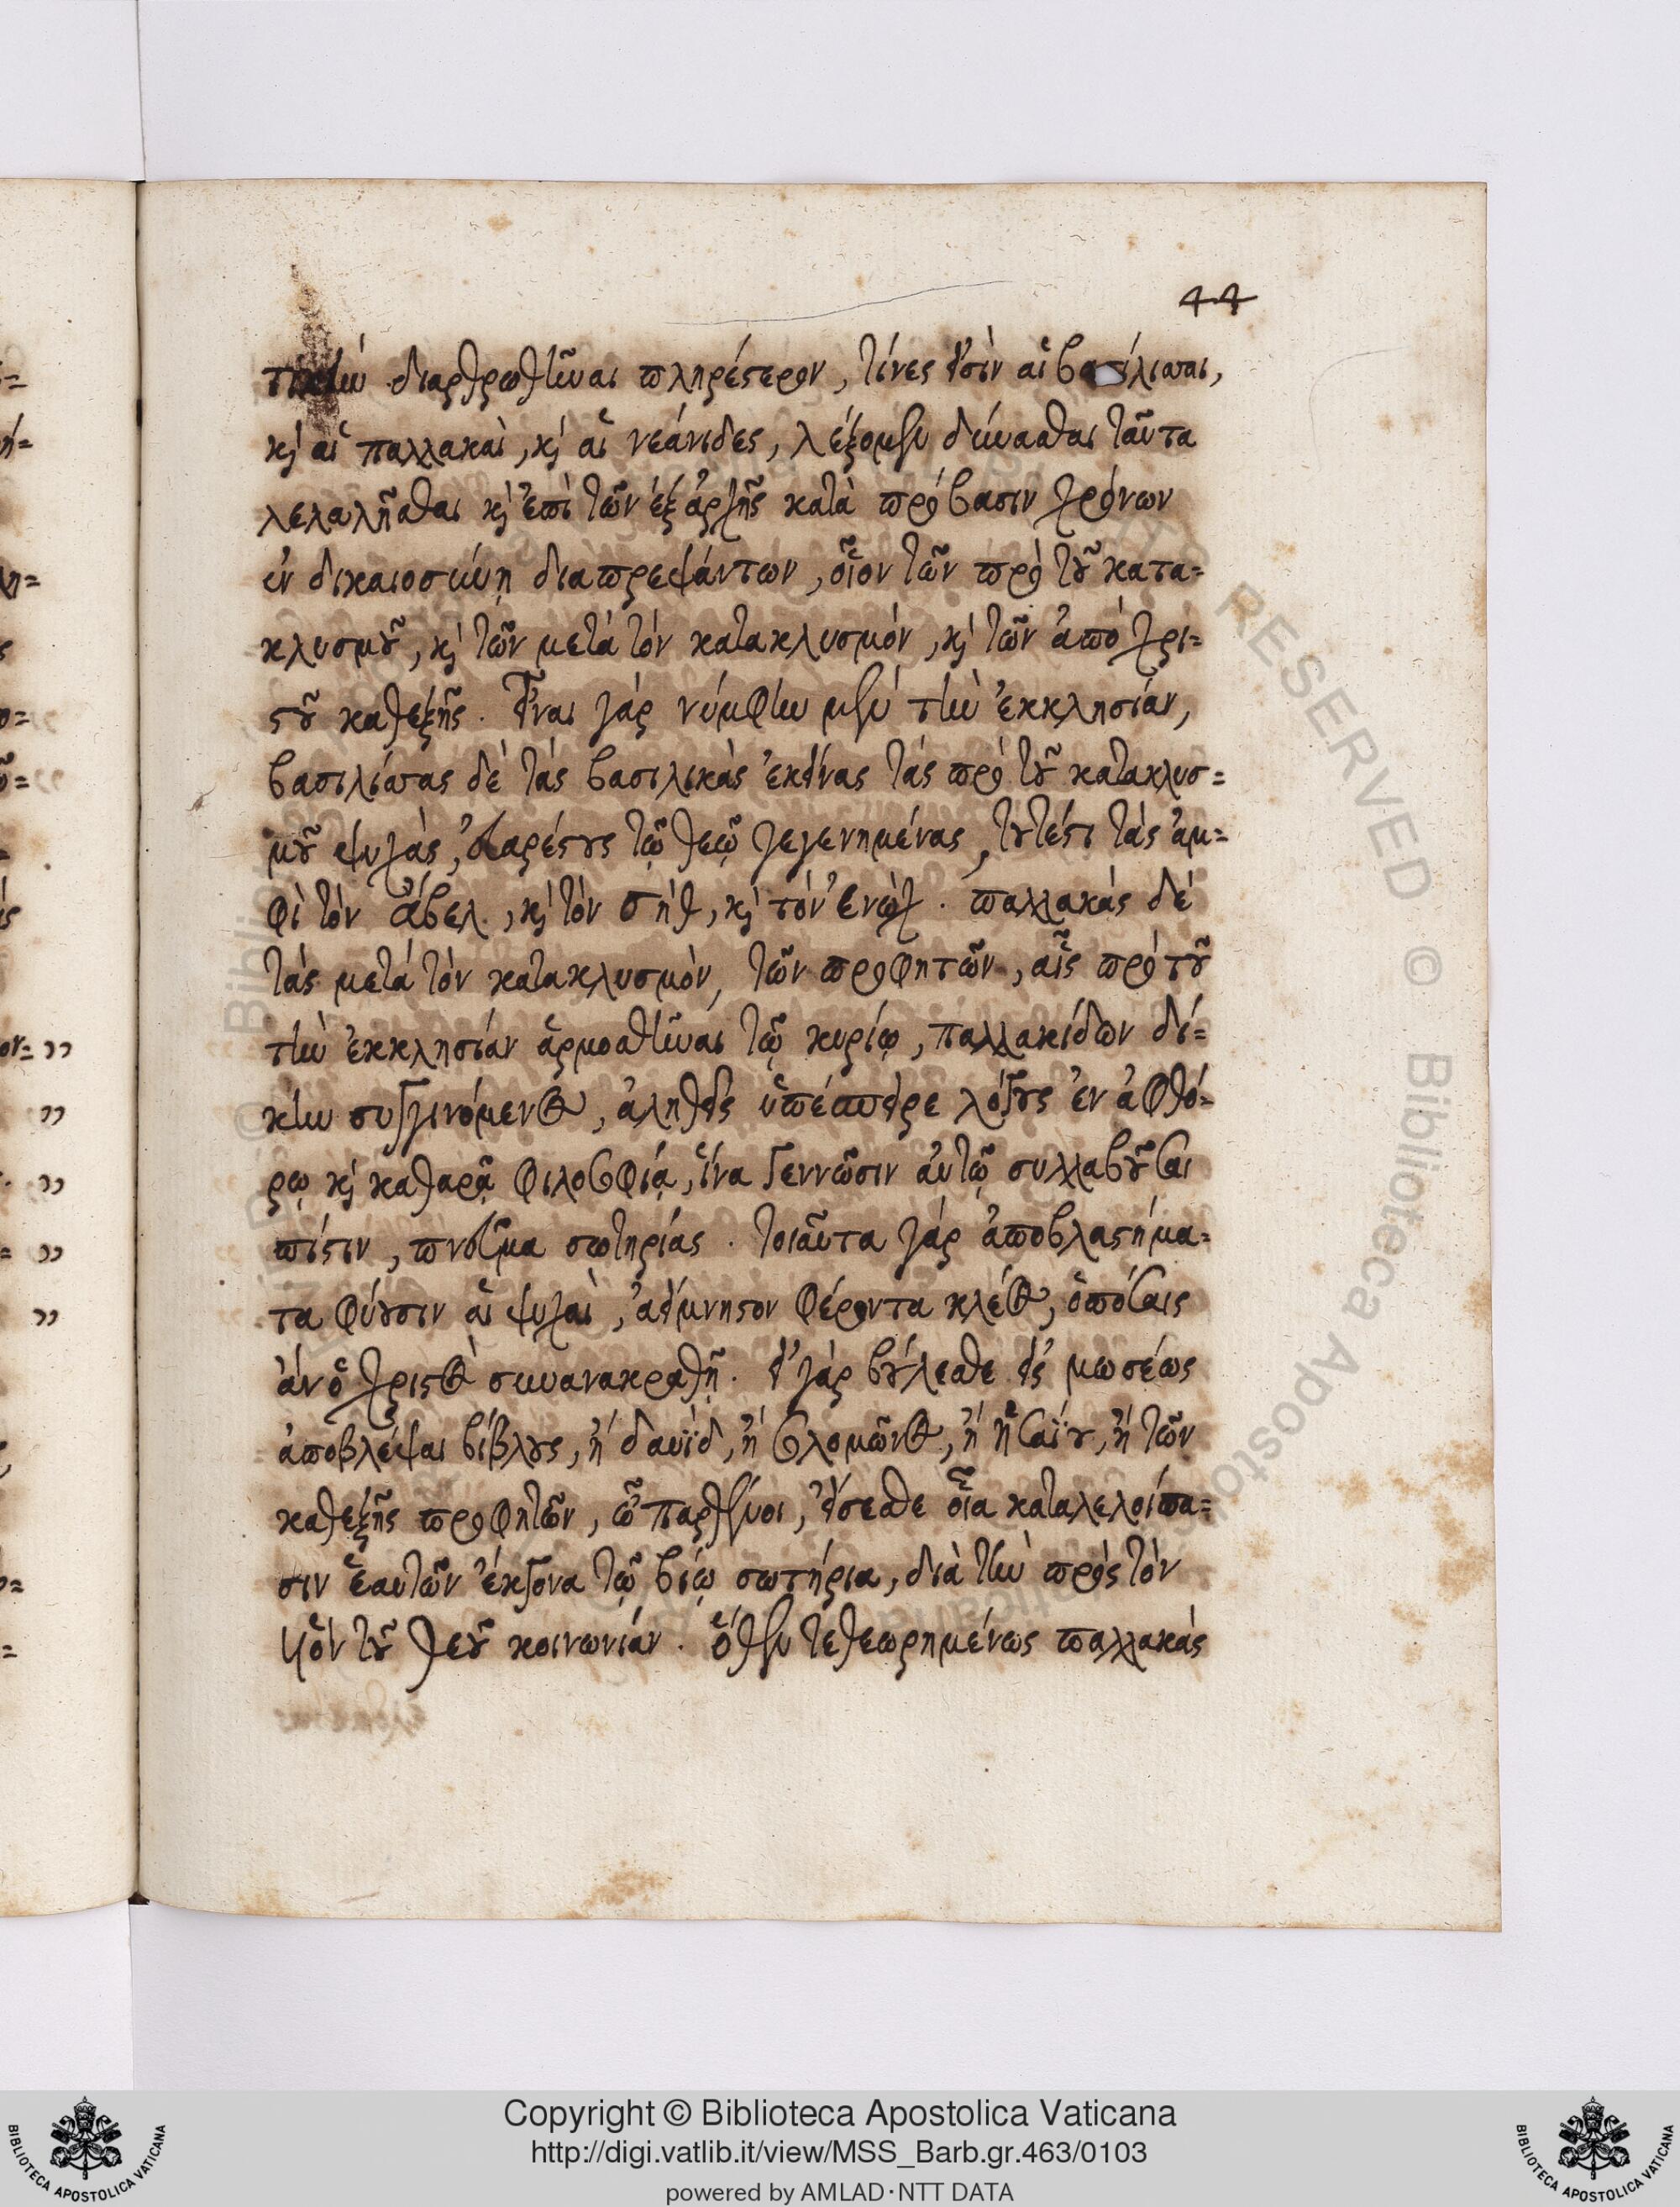 44
τικὴν διαρθρωθῆναι πληρέστερον, τίνες εἰσὶν αἱ βασίλισσαι,
κỳ αἱ παλλακαὶ, κỳ αἱ νεάνιδες, λέξομεν δύνασθαι ταῦτα
λελαλῆσθαι κỳ ἐπὶ τῶν ἐξ ἀρχῆς κατὰ πρόβασιν χρόνων
ἐν δικαιοσύνῃ διαπρεψάντων, οἷον τῶν πρὸ τοῦ κατα=
κλυσμοῦ, κỳ τῶν μετὰ τὸν κατακλυσμόν, κỳ τῶν ἀπὸ χρι=
στοῦ καθεξῆς. Εἶναι γάρ νύμφην μὲν τὴν ἐκκλησίαν,
βασιλίσσας δὲ τὰς βασιλικὰς ἐκείνας τὰς πρὸ τοῦ κατακλυσ=
μοῦ ψυχὰς, εὐαρέστους τῷ θεῷ γεγενημένας, τουτέστι τὰς ἀμ=
φὶ τὸν Ἄβελ, κỳ τὸν σὴθ, κỳ τὸν ἐνώχ. παλλακὰς δὲ
τὰς μετὰ τὸν κατακλυσμὸν, τῶν προφητῶν, αἷς πρὸ τοῦ
τὴν ἐκκλησίαν ἁρμοσθῆναι τῷ κυρίῳ, παλλακίδων δί=
κην συγγινόμενος, ἀληθεῖς ὑπέσπειρε λόγους ἐν ἀφθό=
ρῳ κỳ καθαρᾷ φιλοσοφίᾳ, ἵνα γεννῶσιν αὐτῷ συλλαβοῦσαι
πίστιν, πνεῦμα σωτηρίας. τοιαῦτα γάρ ἀποβλαστήμα=
τα φύουσιν αἱ ψυχαὶ, ἀείμνηστον φέροντα κλέος, ὁπόσαις
ἀν ὁ χριστὸς συνανακραθῇ. εἰ γάρ βούλεσθε εἰς μωσέως
ἀποβλέψαι βίβλους, ἢ δαυϊδ, ἢ σολομῶνος, ἢ ἡσαΐου, ἢ τῶν
καθεξῆς προφητῶν, ὦ παρθένοι, εἴσεσθε οἷα καταλελοίπα=
σιν ἑαυτῶν ἔκγονα τῷ βίῳ σωτήρια, διὰ τὴν πρὸς τὸν
υἱὸν τοῦ θεοῦ κοινωνίαν. ὅθεν τεθεωρημένως παλλακὰς
Copyright © Biblioteca Apostolica Vaticana
http://digi.vatlib.it/view/MSS_Barb.gr.463/0103
powered by AMLAD·NTT DATA